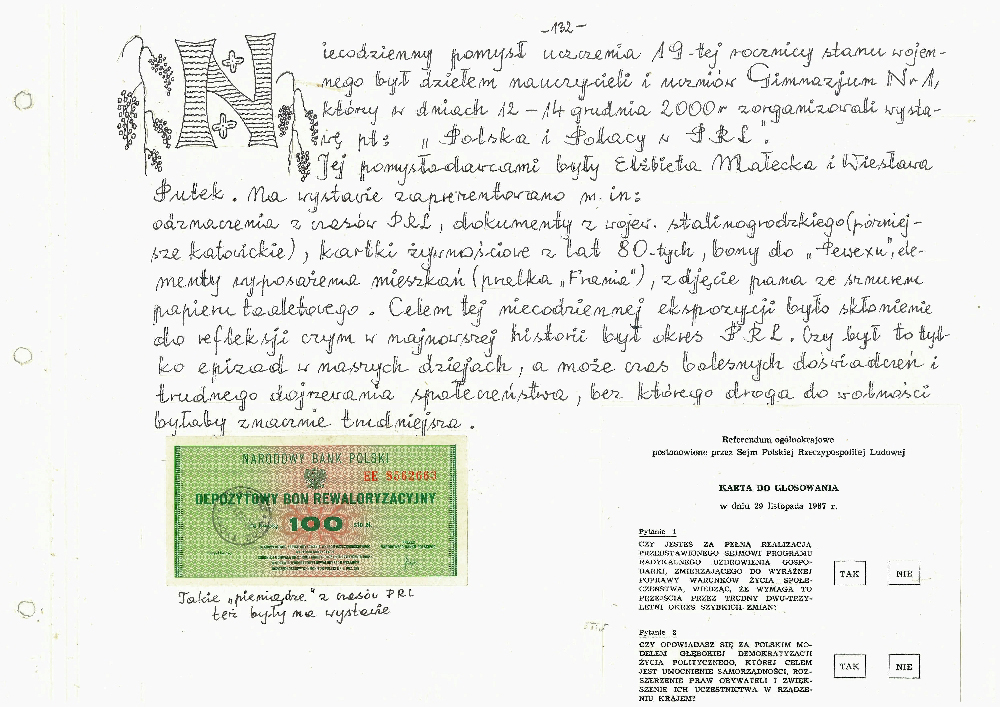 -132-
Niecodzienny pomysł uczczenia 19-tej rocznicy stanu wojen-
nego był dziełem nauczycieli i uczniów Gimnazjum Nr 1,
którzy w dniach 12-14 grudnia 2000r zorganizowali wysta-
wę pt: "Polska i Polacy w PRL".
Jej pomysłodawcami były Elżbieta Małecka i Wiesława
Putek. Na wystawie zaprezentowano m.in:
odznaczenia z czasów PRL, dokumenty z wojew. stalinogrodzkiego (później-
sze katowickie), kartki żywnościowe z lat 80-tych, bony do "Pewexu", ele-
menty wyposażenia mieszkań (pralka "Frania"), zdjęcie pana ze sznurem
papieru toaletowego. Celem tej niecodziennej ekspozycji było skłonienie
do refleksji czym w najnowszej historii był okres PRL. Czy był to tyl-
ko epizod w naszych dziejach, a może czas bolesnych doświadczeń i
trudnego dojrzewania społeczeństwa, bez którego droga do wolności
byłaby znacznie trudniejsza.
NARODOWY BANK POLSKI
EE 8562663
DEPOZYTOWY BON REWALORYZACYJNY
100
Takie "pieniądze" z czasów PRL
też były na wystawie
Referendum ogólnokrajowe
postanowione przez Sejm Polskiej Rzeczypospolitej Ludowej
KARTA DO GŁOSOWANIA
w dniu 29 listopada 1987 r.
Pytanie 1
CZY JESTEŚ ZA PEŁNĄ REALIZACJĄ
PRZEDSTAWIONEGO SEJMOWI PROGRAMU
RADYKALNEGO UZDROWIENIA GOSPO-
DARKI, ZMIERZAJĄCEGO DO WYRAŹNEJ
POPRAWY WARUNKÓW ŻYCIA SPOŁE-
CZEŃSTWA, WIEDZĄC, ŻE WYMAGA TO
PRZEJŚCIA PRZEZ TRUDNY DWU-TRZY-
LETNI OKRES SZYBKICH ZMIAN?
TAK NIE
Pytanie 2
CZY OPOWIADASZ SIĘ ZA POLSKIM MO-
DELEM GŁĘBOKIEJ DEMOKRATYZACJI
ŻYCIA POLITYCZNEGO, KTÓREJ CELEM
JEST UMOCNIENIE SAMORZĄDNOŚCI, ROZ-
SZERZENIE PRAW OBYWATELI I ZWIĘK-
SZENIE ICH UCZESTNICTWA W RZĄDZE-
NIU KRAJEM?
TAK NIE